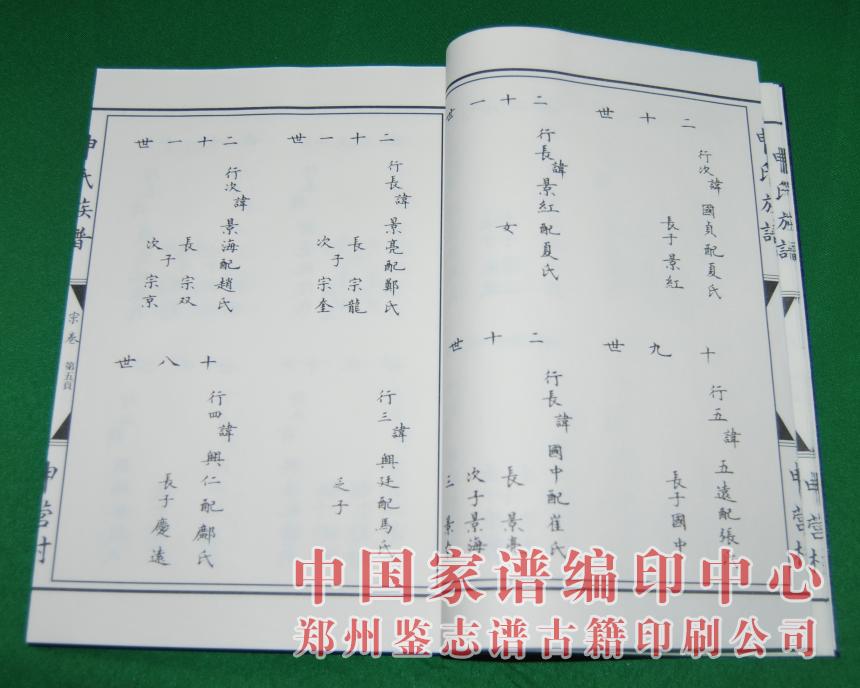 二十世
行次諱國貞配夏氏
長子景紅
十九世
行五諱五遠配張
長子國中
二十一世
行長諱景紅配夏氏
女
二十世
行長諱國中配崔氏
長景亮
次子景海
三景
二十一世
行長諱景亮配鄭氏
長宗龍
子
次宗奎
行三諱興廷配馬氏
乏子
二十一世
行次諱景海配趙氏
長宗双
子
次宗京
十八世
行四諱興仁配鄺氏
長子慶遠
申氏族普
宗卷
第五頁
申营村
申氏族譜
申营村
申氏族譜
申营村
中国家谱编印中心
郑州鉴志谱古籍印刷公司